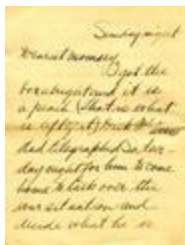 Sunday night
Dearest Mommsey
I got the
and it is
a peach (that is what
is left of it)
dad telegraphed Satur-
day night for him to come
home to talk over the
war situation and
decide what he